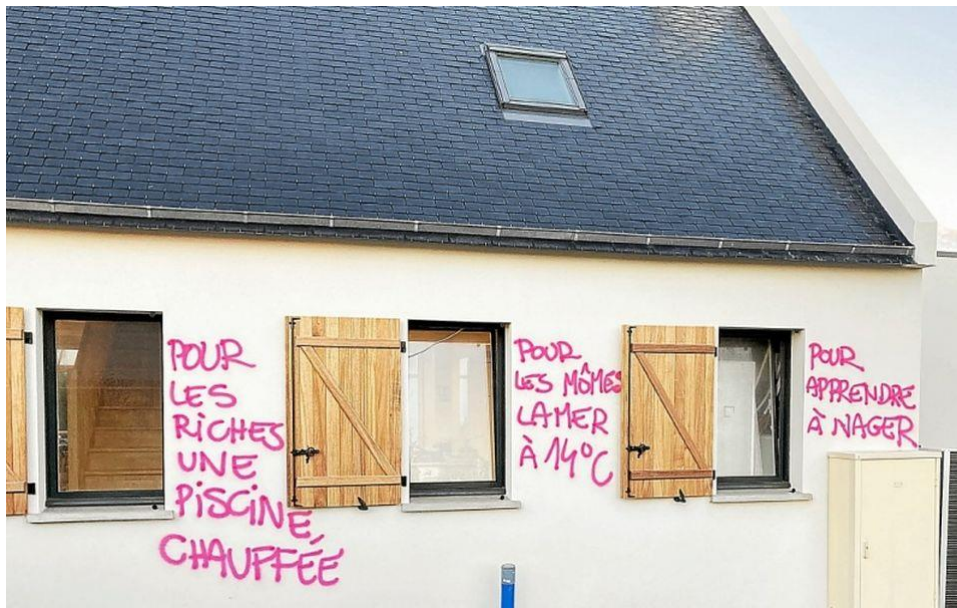 POUR
LES
RICHES
UNE
PISCINE
CHAUFFÉE
POUR
LES MÔMES
LA MER
À 14°C
POUR
APPRENDRE
À NAGER